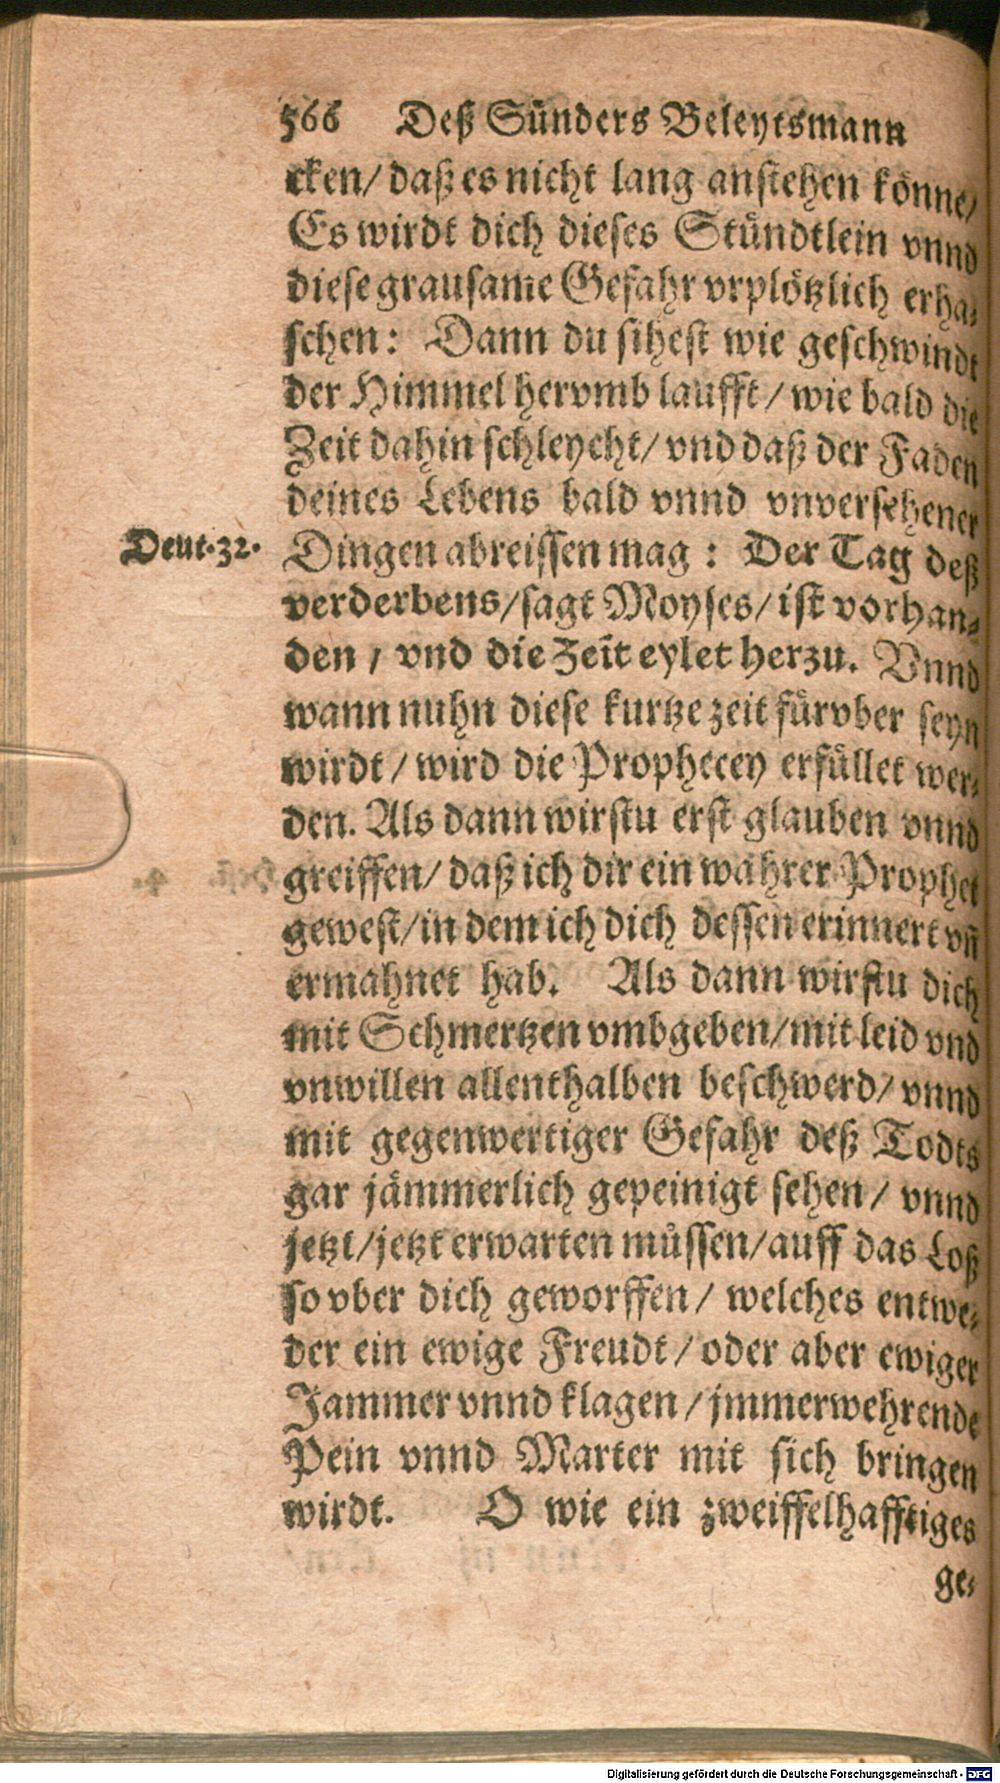 566 Deß Sünders Beleytsmann
cken/ daß es nicht lang anstehen könne/
Es wirdt dich dieses Stündtlein vnnd
diese grausame Gefahr vrplötzlich erha-
schen: Dann du sihest wie geschwindt
der Himmel hervmb laufft/ wie bald die
Zeit dahin schleycht/ vnd daß der Faden
deines Lebens bald vnnd vnversehener
Deut.32. Dingen abreissen mag: Der Tag deß
verderbens/ sagt Moyses/ ist vorhan-
den, vnd die Zeit eylet herzu. Vnnd
wann nuhn diese kurtze zeit fürvber seyn
wirdt/ wird die Prophecey erfüllet wer-
den. Als dann wirstu erst glauben vnnd
greiffen/ daß ich dir ein wahrer Prophet
gewest/ in dem ich dich dessen erinnert vñ
ermahnet hab. Als dann wirstu dich
mit Schmertzen vmbgeben/ mit leid vnd
vnwillen allenthalben beschwerd/ vnnd
mit gegenwertiger Gefahr deß Todts
gar jämmerlich gepeinigt sehen/ vnnd
jetzt/ jetzt erwarten müssen/ auff das Loß
so vber dich geworffen/ welches entwe-
der ein ewige Freudt/ oder aber ewiger
Jammer vnnd klagen/ jmmerwehrende
Pein vnnd Marter mit sich bringen
wirdt. O wie ein zweiffelhafftiges
ge-
Digitalisierung gefördert durch die Deutsche Forschungsgemeinschaft - DFG